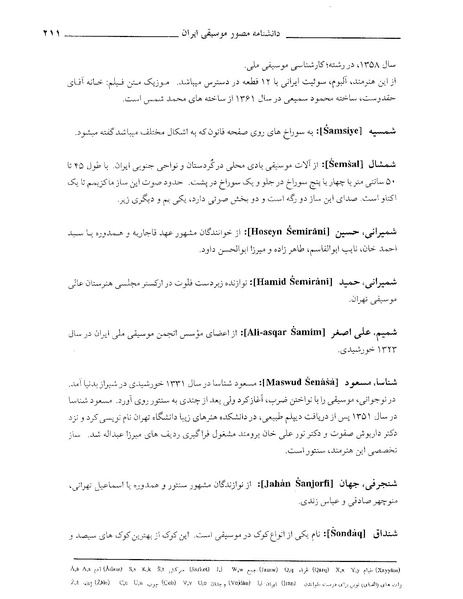 دانشنامه مصور موسیقی ایران ۲۱۱
سال ۱۳۵۸، در رشته؛ کارشناسی موسیقی ملی.
از این هنرمند، آلبوم، سوئیت ایرانی با ۱۲ قطعه در دسترس میباشد. موزیک متن فیلم: خانه آقای
حقدوست، ساخته محمود سمیعی در سال ۱۳۶۱ از ساخته های محمد شمس است.
شمسیه [Šamsiye]: به سوراخ های روی صفحه قانون که به اشکال مختلف میباشد گفته میشود.
شمشال [Šemšal]: از آلات موسیقی بادی محلی در کُردستان و نواحی جنوبی ایران. با طول ۴۵ تا
۵۰ سانتی متر با چهار یا پنج سوراخ در جلو و یک سوراخ در پشت. حدود صوت این ساز ماکزیمم تا یک
اکتاو است. صدای این ساز دو رگه است و دو بخش صوتی دارد، یکی بم و دیگری زیر.
شمیرانی، حسین [Hoseyn Šemiráni]: از خوانندگان مشهور عهد قاجاریه و همدوره با سید
احمد خان، نایب ابوالقاسم، طاهر زاده و میرزا ابوالحسن داود.
شمیرانی، حمید [Hamid Šemiráni]: نوازنده زبردست فلوت در ارکستر مجلسی هنرستان عالی
موسیقی تهران.
شمیم، علی اصغر [Ali-asqar Šamim]: از اعضای مؤسس انجمن موسیقی ملی ایران در سال
۱۳۲۳ خورشیدی.
شناسا، مسعود [Maswud Šenásá]: مسعود شناسا در سال ۱۳۳۱ خورشیدی در شیراز بدنیا آمد.
در نوجوانی، موسیقی را با نواختن ضرب، آغاز کرد ولی بعد از چندی به سنتور روی آورد. مسعود شناسا
در سال ۱۳۵۱ پس از دریافت دیپلم طبیعی، در دانشکده هنرهای زیبا دانشگاه تهران نام نویسی کرد و نزد
دکتر داریوش صفوت و دکتر نور علی خان برومند مشغول فراگیری ردیف های میرزا عبداله شد. ساز
تخصصی این هنرمند، سنتور است.
شنجرفی، جهان [Jahán Šanjorfi]: از نوازندگان مشهور سنتور و همدوره با اسماعیل تهرانی،
منوچهر صادقی و عباس زندی.
شنداق [Šondáq]: نام یکی از انواع کوک در موسیقی است. این کوک از بهترین کوک های سیصد و